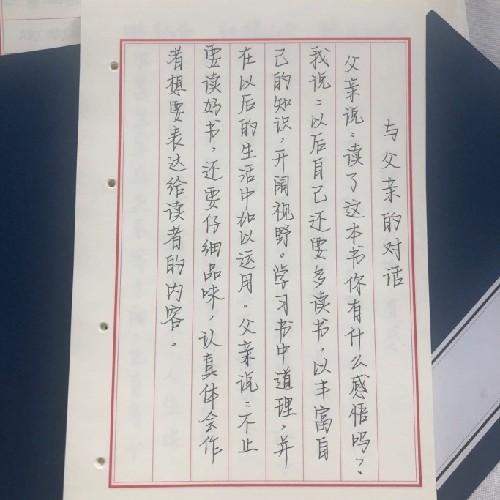 与父亲的对话
父亲说：读了这本书你有什么感悟吗？
我说：以后自己还要多读书，以丰富自
己的知识，开阔视野。学习书中道理，并
在以后的生活中加以运用。父亲说：不止
要读好书，还要仔细品味，认真体会作
者想要表达给读者的内容。